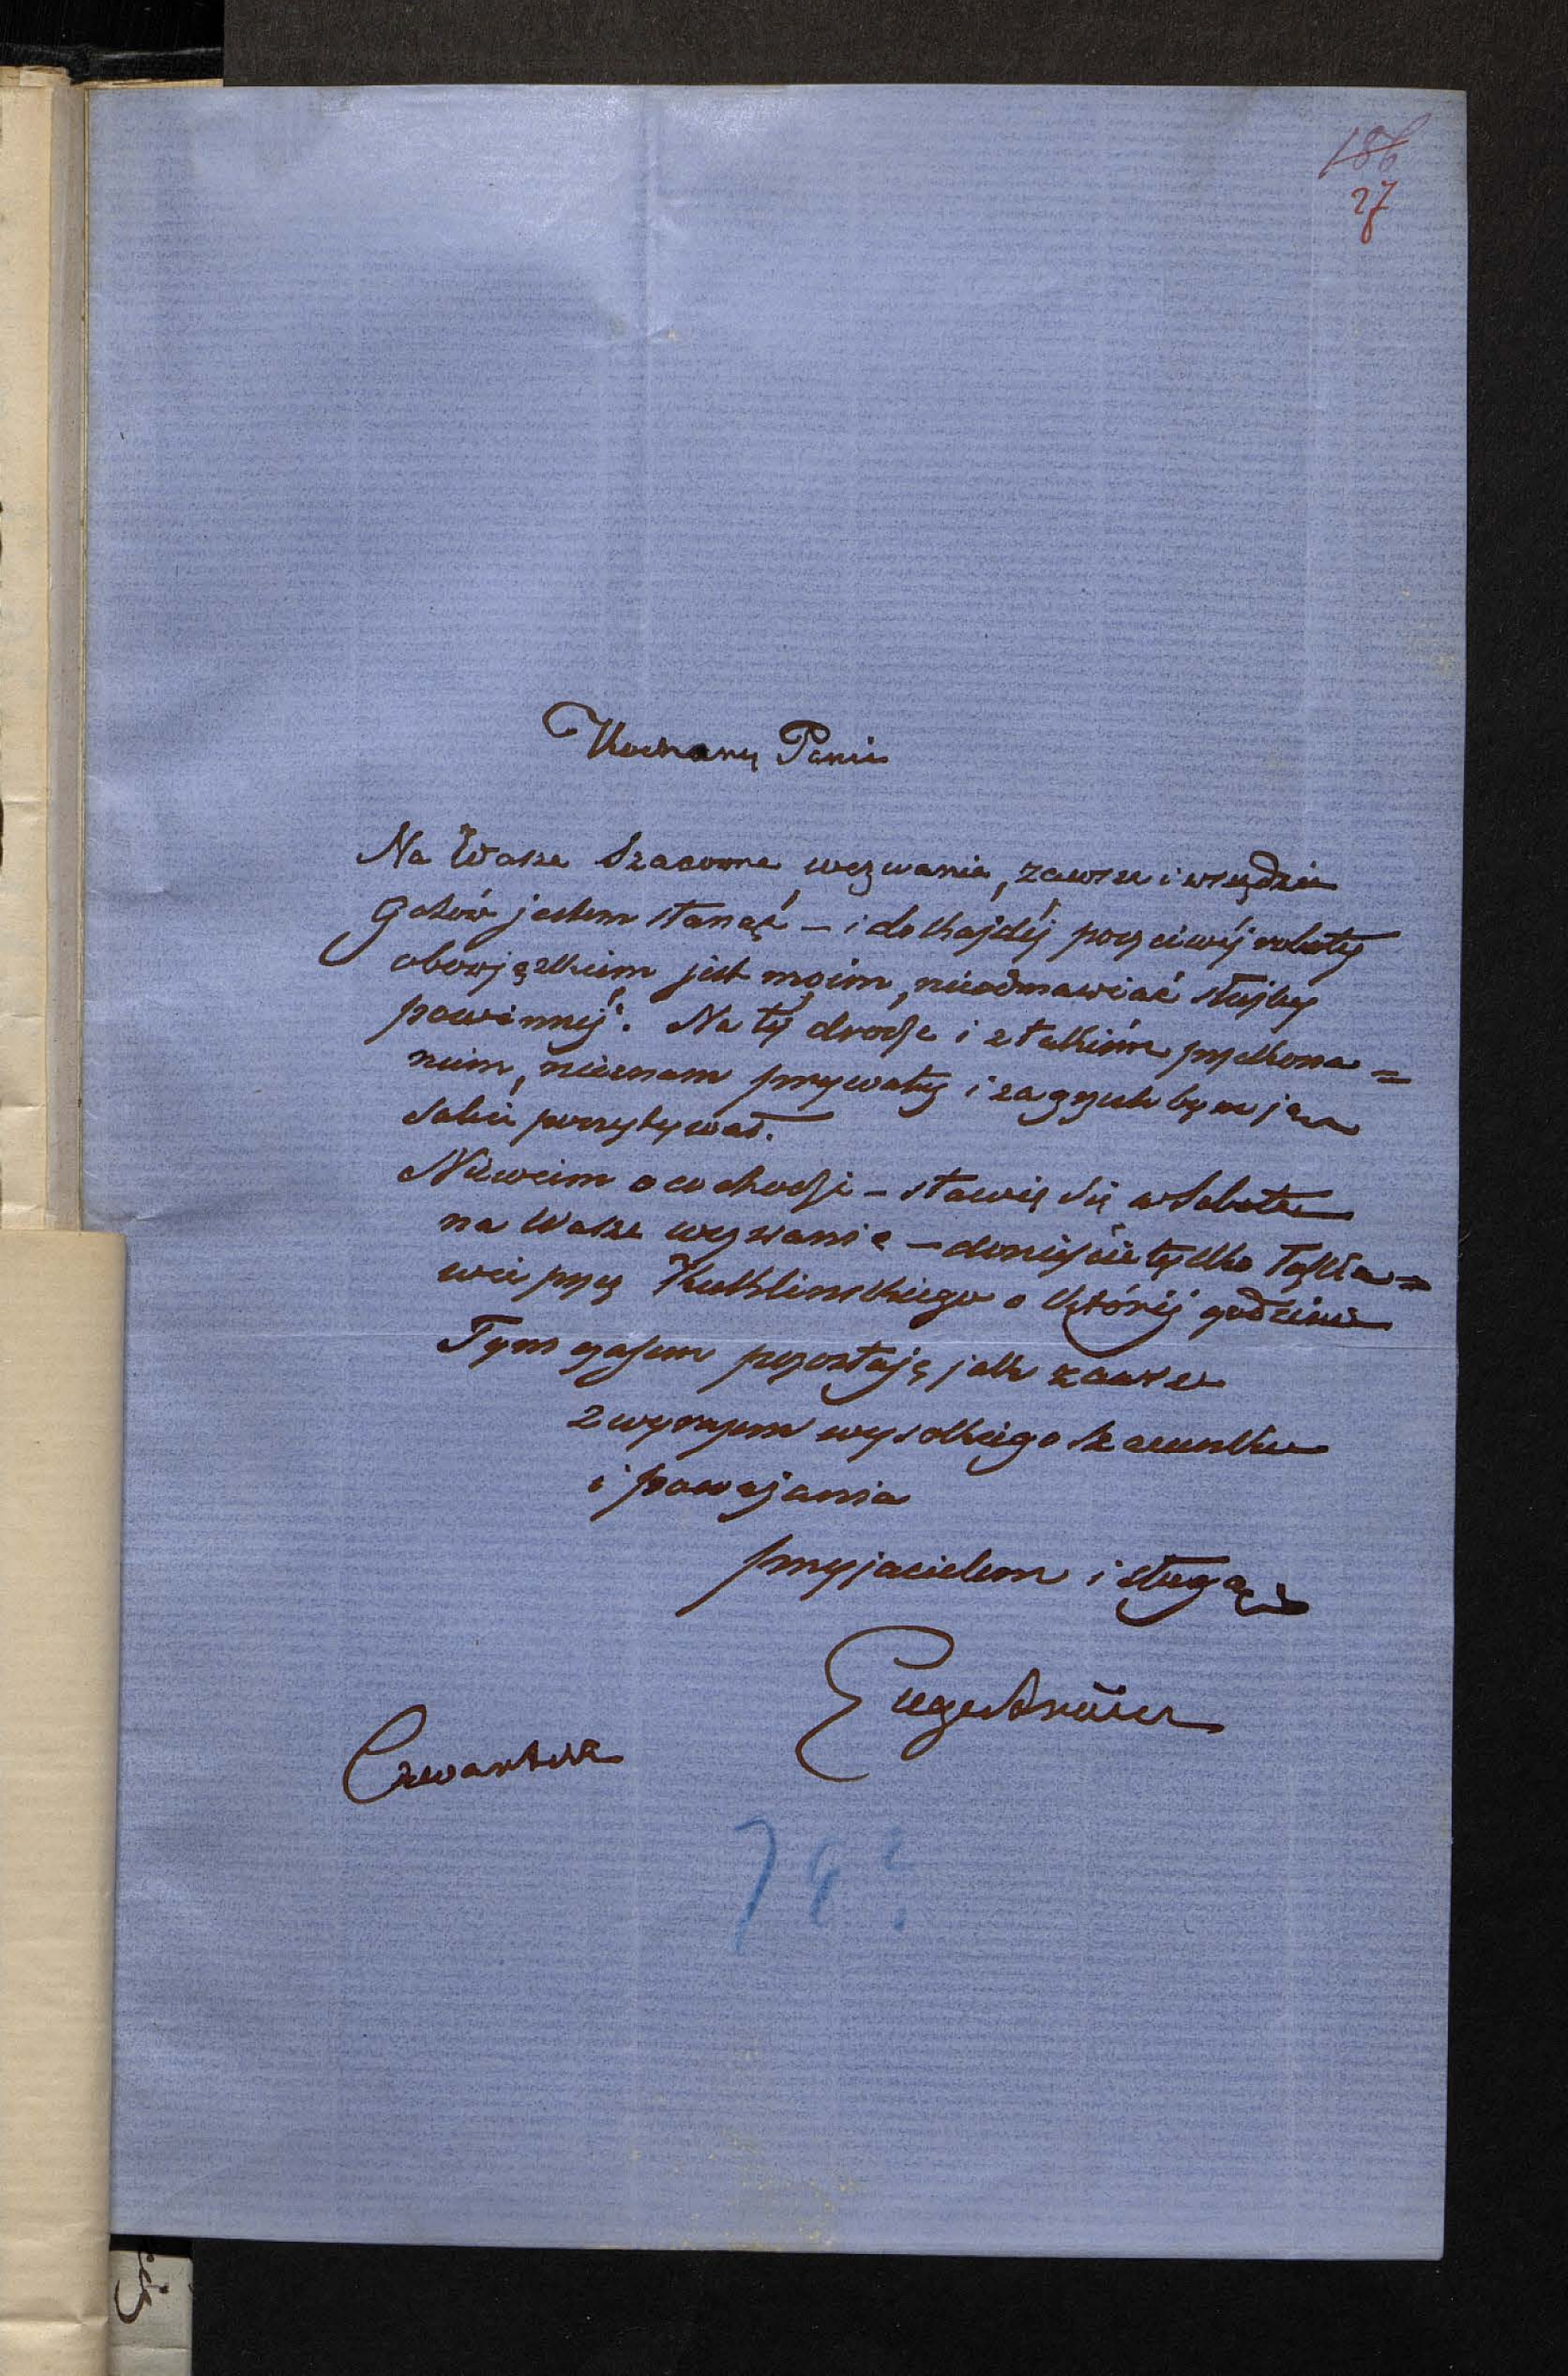 186
27
Kochany Panie
Na Wasze Szacowne wezwanie, zawsze i wszędzie
Gotów jestem stanąć – i do każdéj poczciwéj roboty
obowjązkiem jest moim, nieodmawiać służby
powinnéj. Na téj drodze i z takiém przekona=
niem, nieznam prywaty i za grzech bym ją
sobie poczytywał.
Niewiem o co chodzi – stawię się w Sobotę
na Wasze wezwanie – donieście tylko łaska=
wie przez Kuklinskiego o któréj godzinie
Tymczasem pozostaję jak zawsze
z wyrazem wysokiego szacunku
i poważania
przyjacielem i sługą
Czwartek
78?